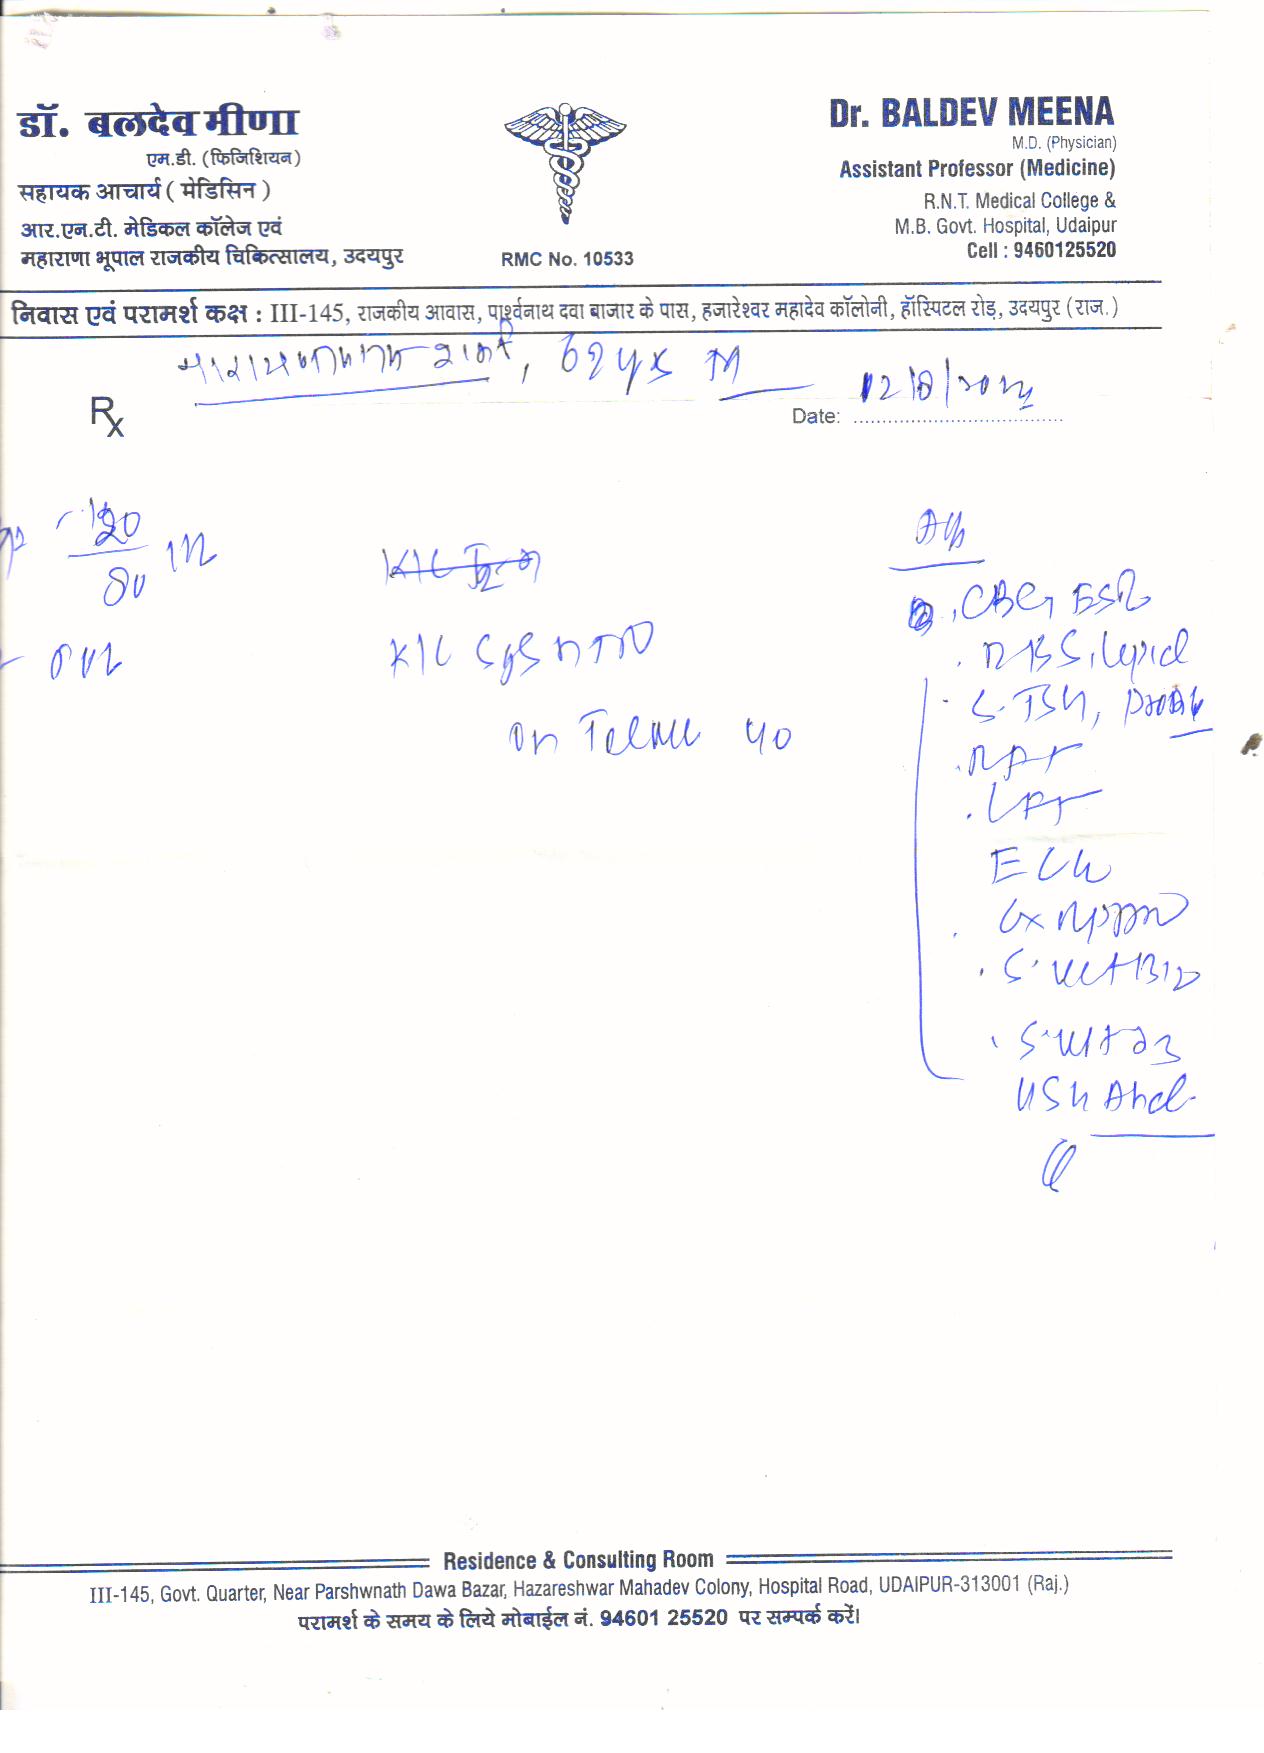 डॉ. बलदेव मीणा
एम.डी. (फिजिशियन)
सहायक आचार्य ( मेडिसिन )
आर.एन.टी. मेडिकल कॉलेज एवं
महाराणा भूपाल राजकीय चिकित्सालय, उदयपुर
RMC No. 10533
Dr. BALDEV MEENA
M.D. (Physician)
Assistant Professor (Medicine)
R.N.T. Medical College &
M.B. Govt. Hospital, Udaipur
Cell : 9460125520
निवास एवं परामर्श कक्ष : III-145, राजकीय आवास, पार्श्वनाथ दवा बाजार के पास, हजारेश्वर महादेव कॉलोनी, हॉस्पिटल रोड़, उदयपुर (राज.)
शर्मा, 62 yrs M
Rx
Date: 12/8/2024
120
80
K/C
K/C
on Telma 40
CBC, ESR
RBS, Lipid
S. TSH,
RFT
LFT
ECG
S. Vit B12
S. Vit D3
USG Abd.
Residence & Consulting Room
III-145, Govt. Quarter, Near Parshwnath Dawa Bazar, Hazareshwar Mahadev Colony, Hospital Road, UDAIPUR-313001 (Raj.)
परामर्श के समय के लिये मोबाईल नं. 94601 25520 पर सम्पर्क करें।